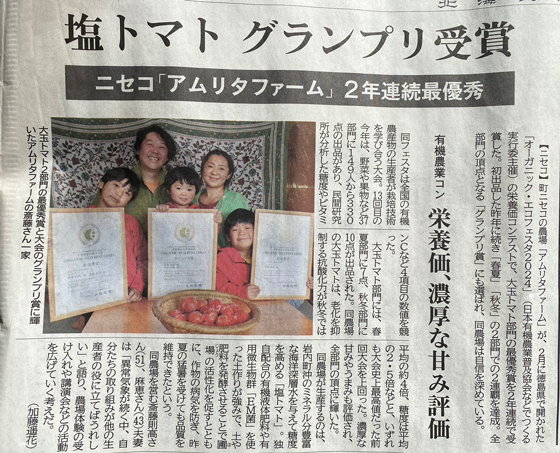 塩トマト グランプリ受賞
ニセコ「アムリタファーム」2年連続最優秀
有機農業コン 栄養価、濃厚な甘み評価
【ニセコ】町ニセコの農場
「アムリタファーム」が、2月に徳島県で開かれた
「オーガニック・エコフェスタ2024」(日本有機農業普及協会などでつくる
実行委主催)の栄養価コンテストで、大玉トマト部門の最優秀賞を2年連続で受
賞した。初出品した昨年に続き「春夏」「秋冬」の2部門での2連覇を達成。全
部門の頂点となる「グランプリ賞」にも選ばれ、同農場は自信を深めている。
同フェスタは全国の有機
農産物の生産者が栽培技術
を学び合う大会。13回目の
今年は、野菜や果物など37
部門に149人から330
点の出品があり、民間研究
所が分析した糖度やビタミ
ンCなど4項目の数値を競
った。
大玉トマト部門では、春
夏部門に7点、秋冬部門に
10点が出品された。同農場
の大玉トマトは、老化を抑
制する抗酸化力が秋冬では
平均の約4倍、糖度は平均
の2・5倍などと、いずれ
も大会史上最高値だった前
回大会を上回った。濃厚な
甘みやうまみも評価され、
全部門の頂点に輝いた。
同農場が生産するのは、
岩内町沖のミネラル分豊富
な海洋深層水を与えて糖度
を高める「塩トマト」。独
自配合の有機液体肥料や有
用微生物群(EM菌)を使
った土作りが強みで、土や
肥料を発酵させることで圃
場の活性化を促すととも
に、作物の病気を防ぎ、昨
夏の猛暑を受けても品質を
維持できたという。
同農場を営む斎藤剛高さ
ん(51)、麻恵さん(43)夫妻
は「異常気象が続く中、自
分たちの取り組みが他の生
産者の役に立てばうれし
い」と語り、農場体験の受
け入れや講演会などの活動
を広げていく考えだ。
(加藤蓮花)
大玉トマト2部門の最優秀賞と大会のグランプリ賞に輝
いたアムリタファームの斎藤さん一家